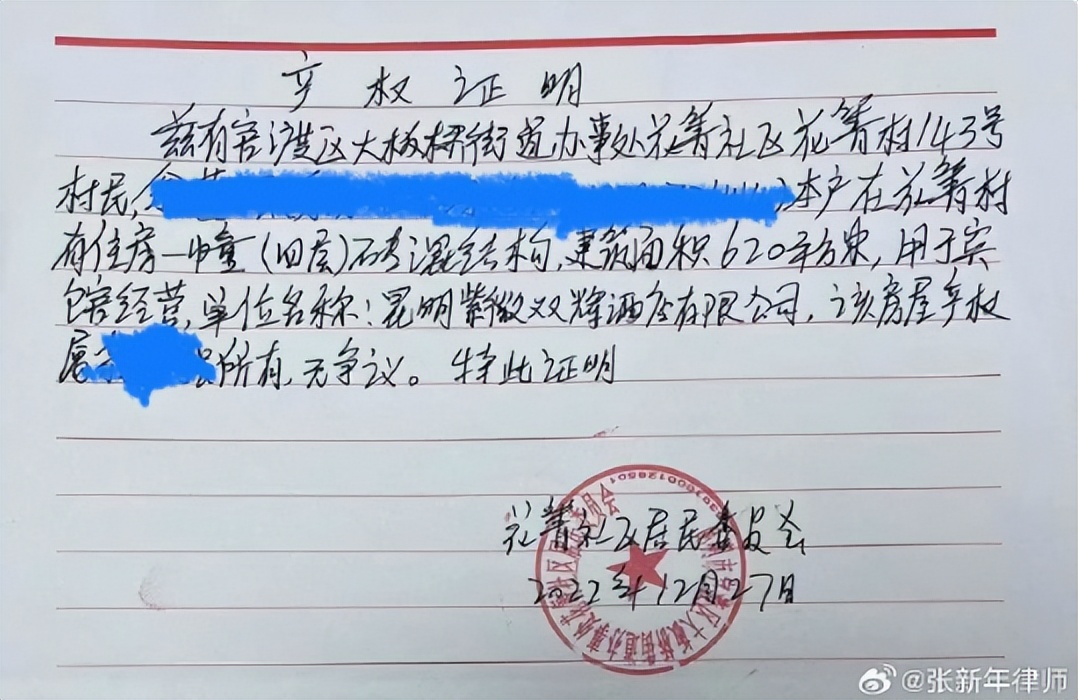 产权证明
兹有官渡区大板桥街道办事处花箐社区花箐村143号
村民,
本户在花箐村
有住房一幢(四层)砖混结构,建筑面积620平方米,用于宾
馆经营,单位名称:昆明紫微双辉酒店有限公司,该房屋产权
属
所有,无争议。特此证明
花箐社区居民委员会
2022年12月27日
@张新年律师